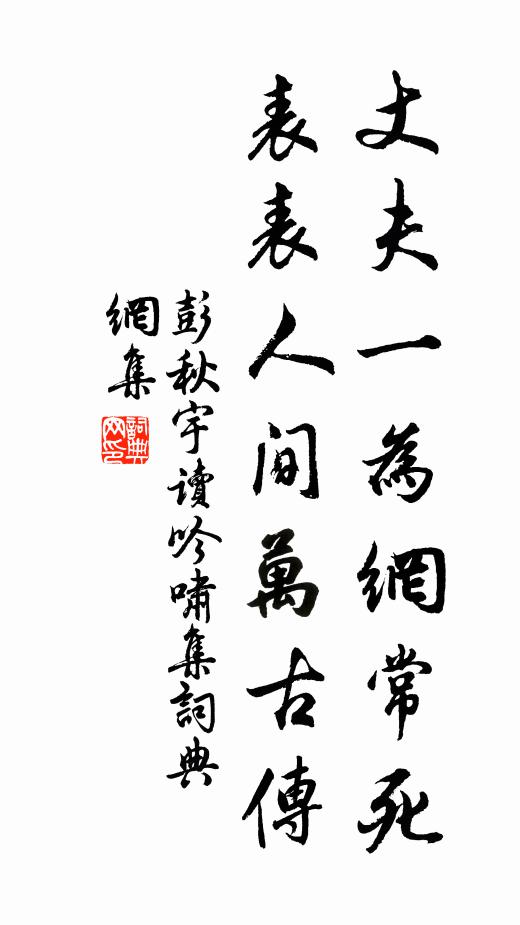 丈夫一為網常死
表表人間萬古傳
彭秋宇讀吟嘯集詞典
網集
詞典
网印